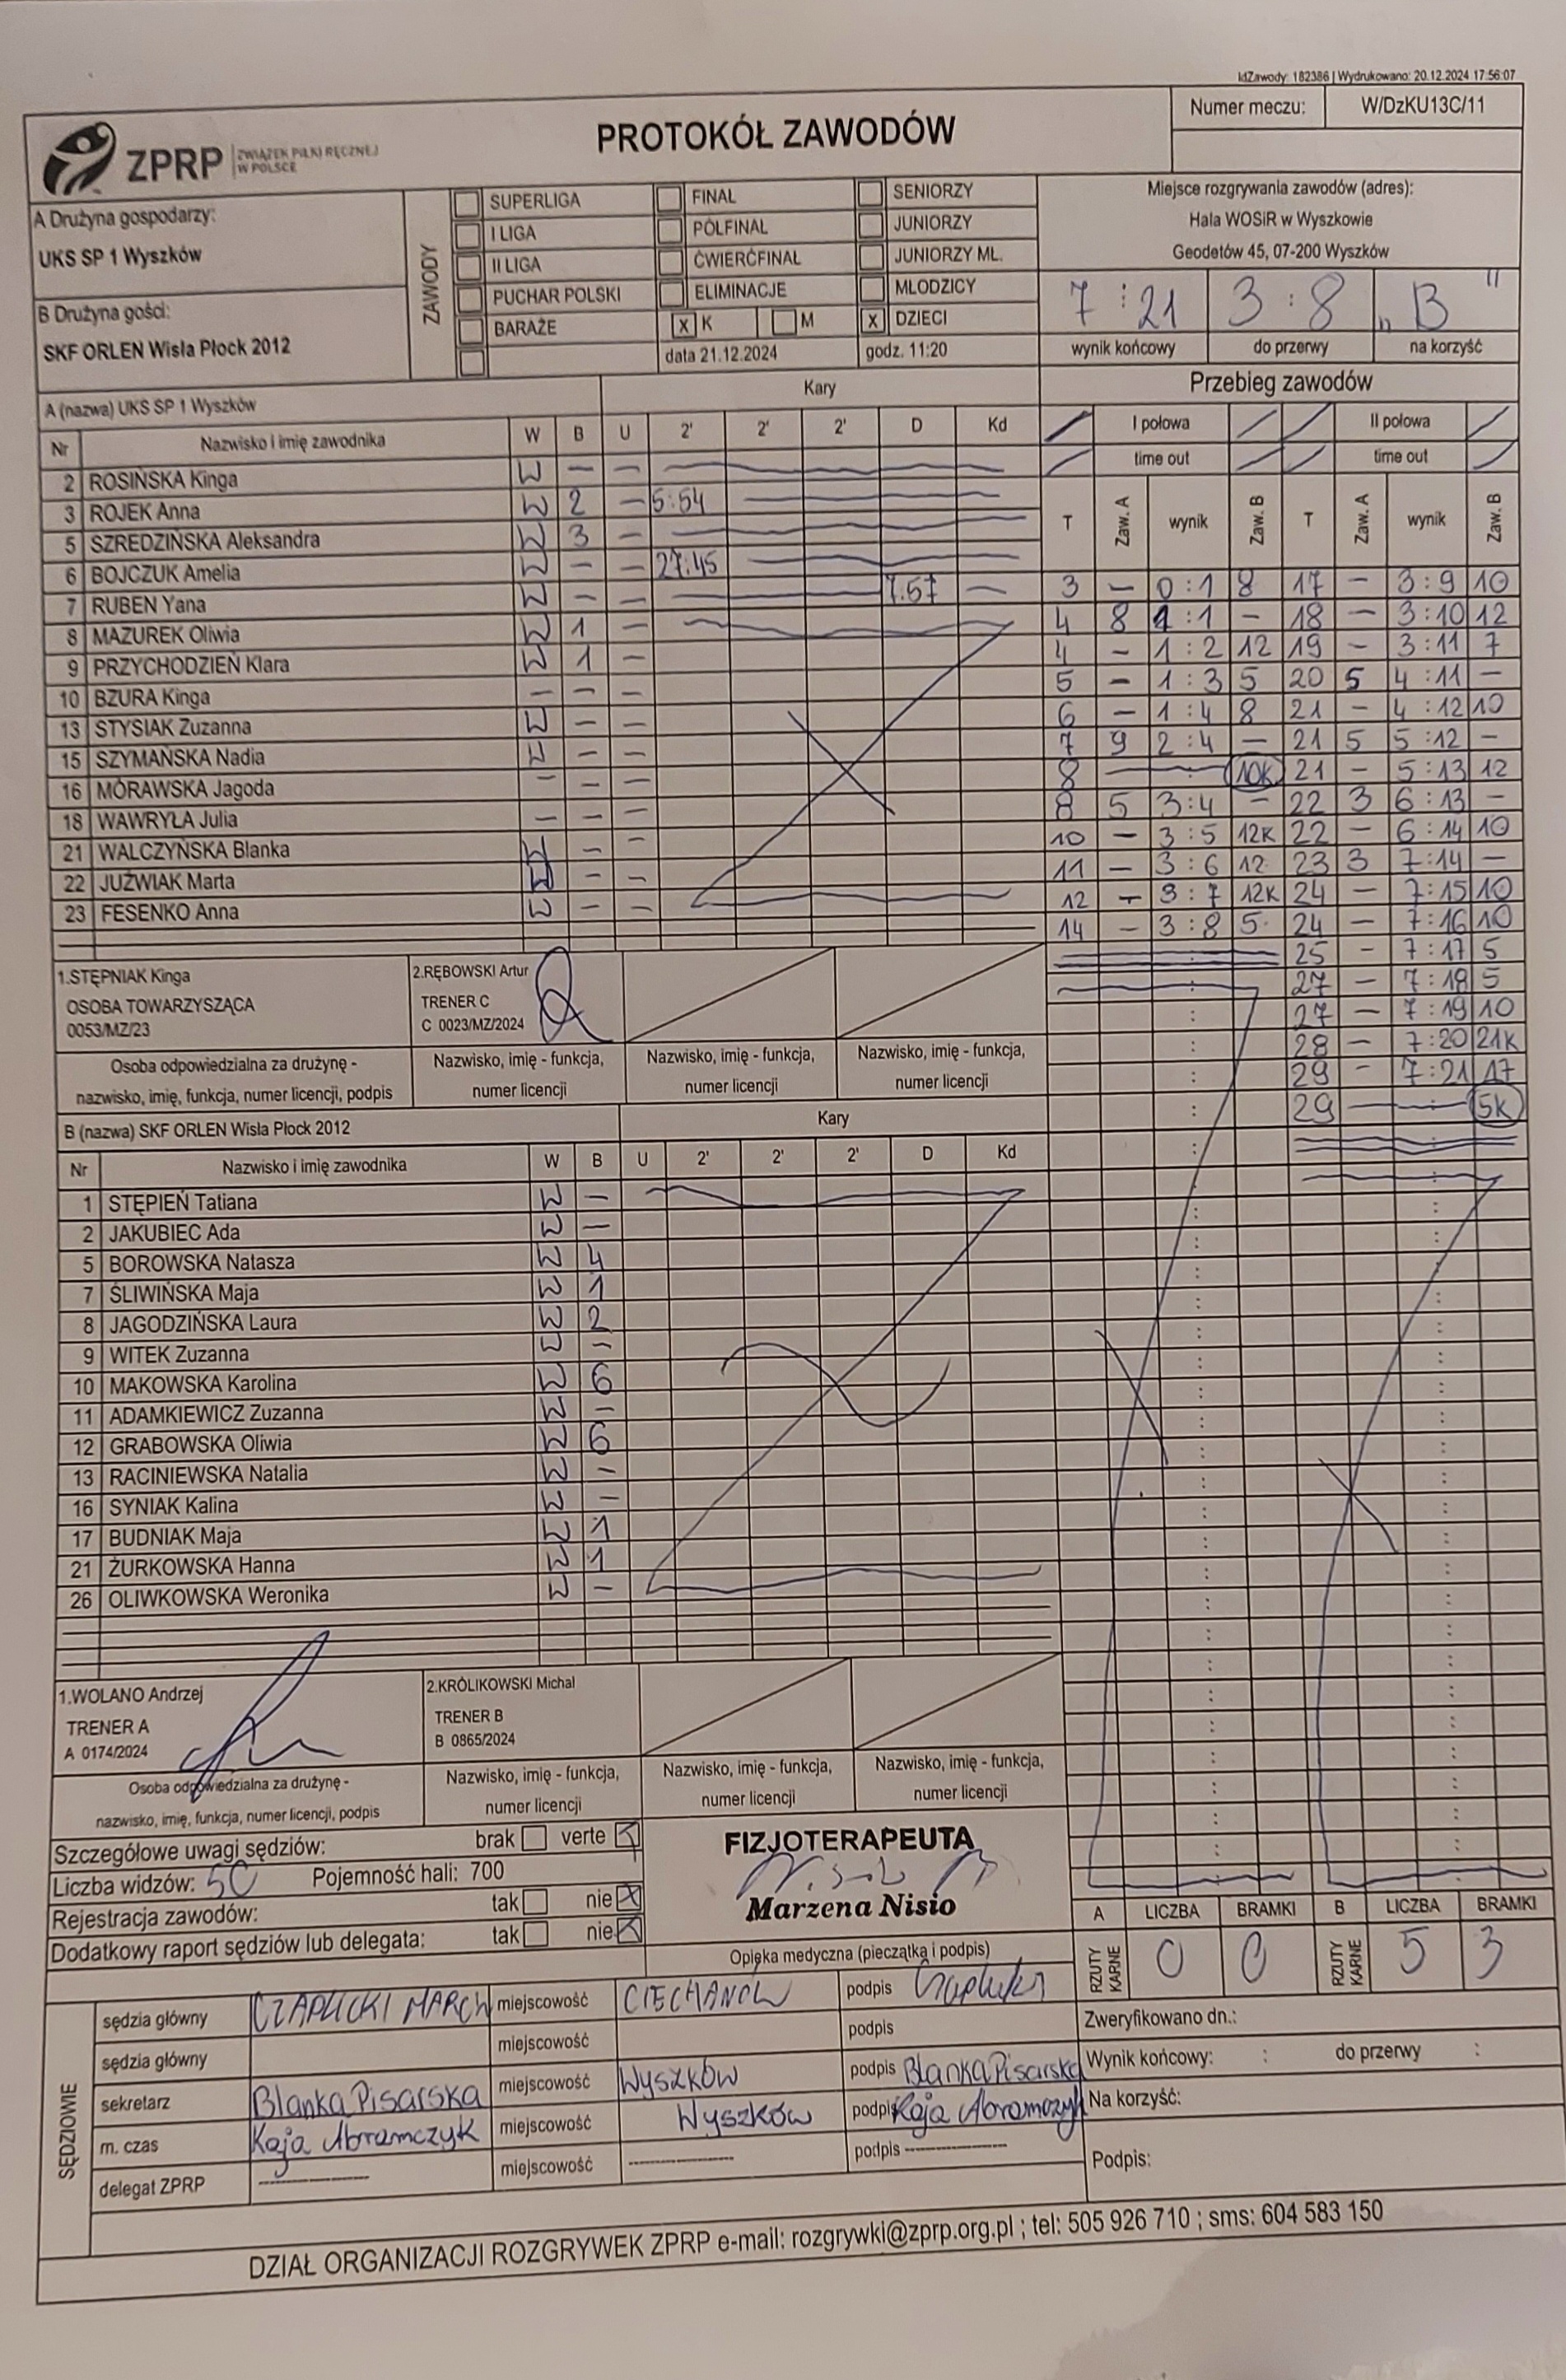 IdZawody: 182386 | Wydrukowano: 20.12.2024 17:56:07
ZPRP ZWIĄZEK PIŁKI RĘCZNEJ W POLSCE
PROTOKÓŁ ZAWODÓW
Numer meczu: W/DzKU13C/11
A Drużyna gospodarzy:
UKS SP 1 Wyszków
B Drużyna gości:
SKF ORLEN Wisła Płock 2012
ZAWODY
SUPERLIGA FINAŁ SENIORZY
I LIGA PÓŁFINAŁ JUNIORZY
II LIGA ĆWIERĆFINAŁ JUNIORZY MŁ.
PUCHAR POLSKI ELIMINACJE MŁODZICY
BARAŻE x K M x DZIECI
data 21.12.2024 godz. 11:20
Miejsce rozgrywania zawodów (adres):
Hala WOSiR w Wyszkowie
Geodetów 45, 07-200 Wyszków
7 : 21 3 : 8 „B"
wynik końcowy do przerwy na korzyść
A (nazwa) UKS SP 1 Wyszków Kary
Nr Nazwisko i imię zawodnika W B U 2' 2' 2' D Kd
2 ROSIŃSKA Kinga W – –
3 ROJEK Anna W 2 – 5:54
5 SZREDZIŃSKA Aleksandra W 3 –
6 BOJCZUK Amelia W – – 27:45
7 RUBEN Yana W – – 7.57 –
8 MAZUREK Oliwia W 1 –
9 PRZYCHODZIEŃ Klara W 1 –
10 BZURA Kinga – – –
13 STYSIAK Zuzanna W – –
15 SZYMAŃSKA Nadia W – –
16 MÓRAWSKA Jagoda – – –
18 WAWRYŁA Julia – – –
21 WALCZYŃSKA Blanka W – –
22 JUŹWIAK Marta W – –
23 FESENKO Anna W – –
1.STĘPNIAK Kinga
OSOBA TOWARZYSZĄCA
0053/MZ/23
2.RĘBOWSKI Artur
TRENER C
C 0023/MZ/2024
Osoba odpowiedzialna za drużynę -
nazwisko, imię, funkcja, numer licencji, podpis
Nazwisko, imię - funkcja,
numer licencji
Nazwisko, imię - funkcja,
numer licencji
Nazwisko, imię - funkcja,
numer licencji
B (nazwa) SKF ORLEN Wisła Płock 2012 Kary
Nr Nazwisko i imię zawodnika W B U 2' 2' 2' D Kd
1 STĘPIEŃ Tatiana W –
2 JAKUBIEC Ada W –
5 BOROWSKA Natasza W 4
7 ŚLIWIŃSKA Maja W 1
8 JAGODZIŃSKA Laura W 2
9 WITEK Zuzanna W –
10 MAKOWSKA Karolina W 6
11 ADAMKIEWICZ Zuzanna W –
12 GRABOWSKA Oliwia W 6
13 RACINIEWSKA Natalia W –
16 SYNIAK Kalina W –
17 BUDNIAK Maja W 1
21 ŻURKOWSKA Hanna W 1
26 OLIWKOWSKA Weronika W –
1.WOLANO Andrzej
TRENER A
A 0174/2024
2.KRÓLIKOWSKI Michał
TRENER B
B 0865/2024
Osoba odpowiedzialna za drużynę -
nazwisko, imię, funkcja, numer licencji, podpis
Nazwisko, imię - funkcja,
numer licencji
Nazwisko, imię - funkcja,
numer licencji
Nazwisko, imię - funkcja,
numer licencji
Przebieg zawodów
I połowa II połowa
time out time out
T Zaw. A wynik Zaw. B T Zaw. A wynik Zaw. B
3 – 0:1 8 17 – 3:9 10
4 8 1:1 – 18 – 3:10 12
4 – 1:2 12 19 – 3:11 7
5 – 1:3 5 20 5 4:11 –
6 – 1:4 8 21 – 4:12 10
7 9 2:4 – 21 5 5:12 –
8 – : 10K 21 – 5:13 12
8 5 3:4 – 22 3 6:13 –
10 – 3:5 12K 22 – 6:14 10
11 – 3:6 12 23 3 7:14 –
12 – 3:7 12K 24 – 7:15 10
14 – 3:8 5 24 – 7:16 10
25 – 7:17 5
27 – 7:18 5
27 – 7:19 10
28 – 7:20 21K
29 – 7:21 17
29 – : 5K
Szczegółowe uwagi sędziów: brak verte
Liczba widzów: 50 Pojemność hali: 700
Rejestracja zawodów: tak nie
Dodatkowy raport sędziów lub delegata: tak nie
FIZJOTERAPEUTA
Marzena Nisio
Opieka medyczna (pieczątka i podpis)
A LICZBA BRAMKI B LICZBA BRAMKI
RZUTY KARNE 0 0 RZUTY KARNE 5 3
SĘDZIOWIE
sędzia główny CZAPLICKI MARCIN miejscowość CIECHANÓW podpis Czaplicki
sędzia główny miejscowość podpis
sekretarz Blanka Pisarska miejscowość Wyszków podpis Blanka Pisarska
m. czas Kaja Abramczyk miejscowość Wyszków podpis Kaja Abramczyk
delegat ZPRP ---------- miejscowość ---------- podpis ----------
Zweryfikowano dn.:
Wynik końcowy: : do przerwy :
Na korzyść:
Podpis:
DZIAŁ ORGANIZACJI ROZGRYWEK ZPRP e-mail: rozgrywki@zprp.org.pl ; tel: 505 926 710 ; sms: 604 583 150